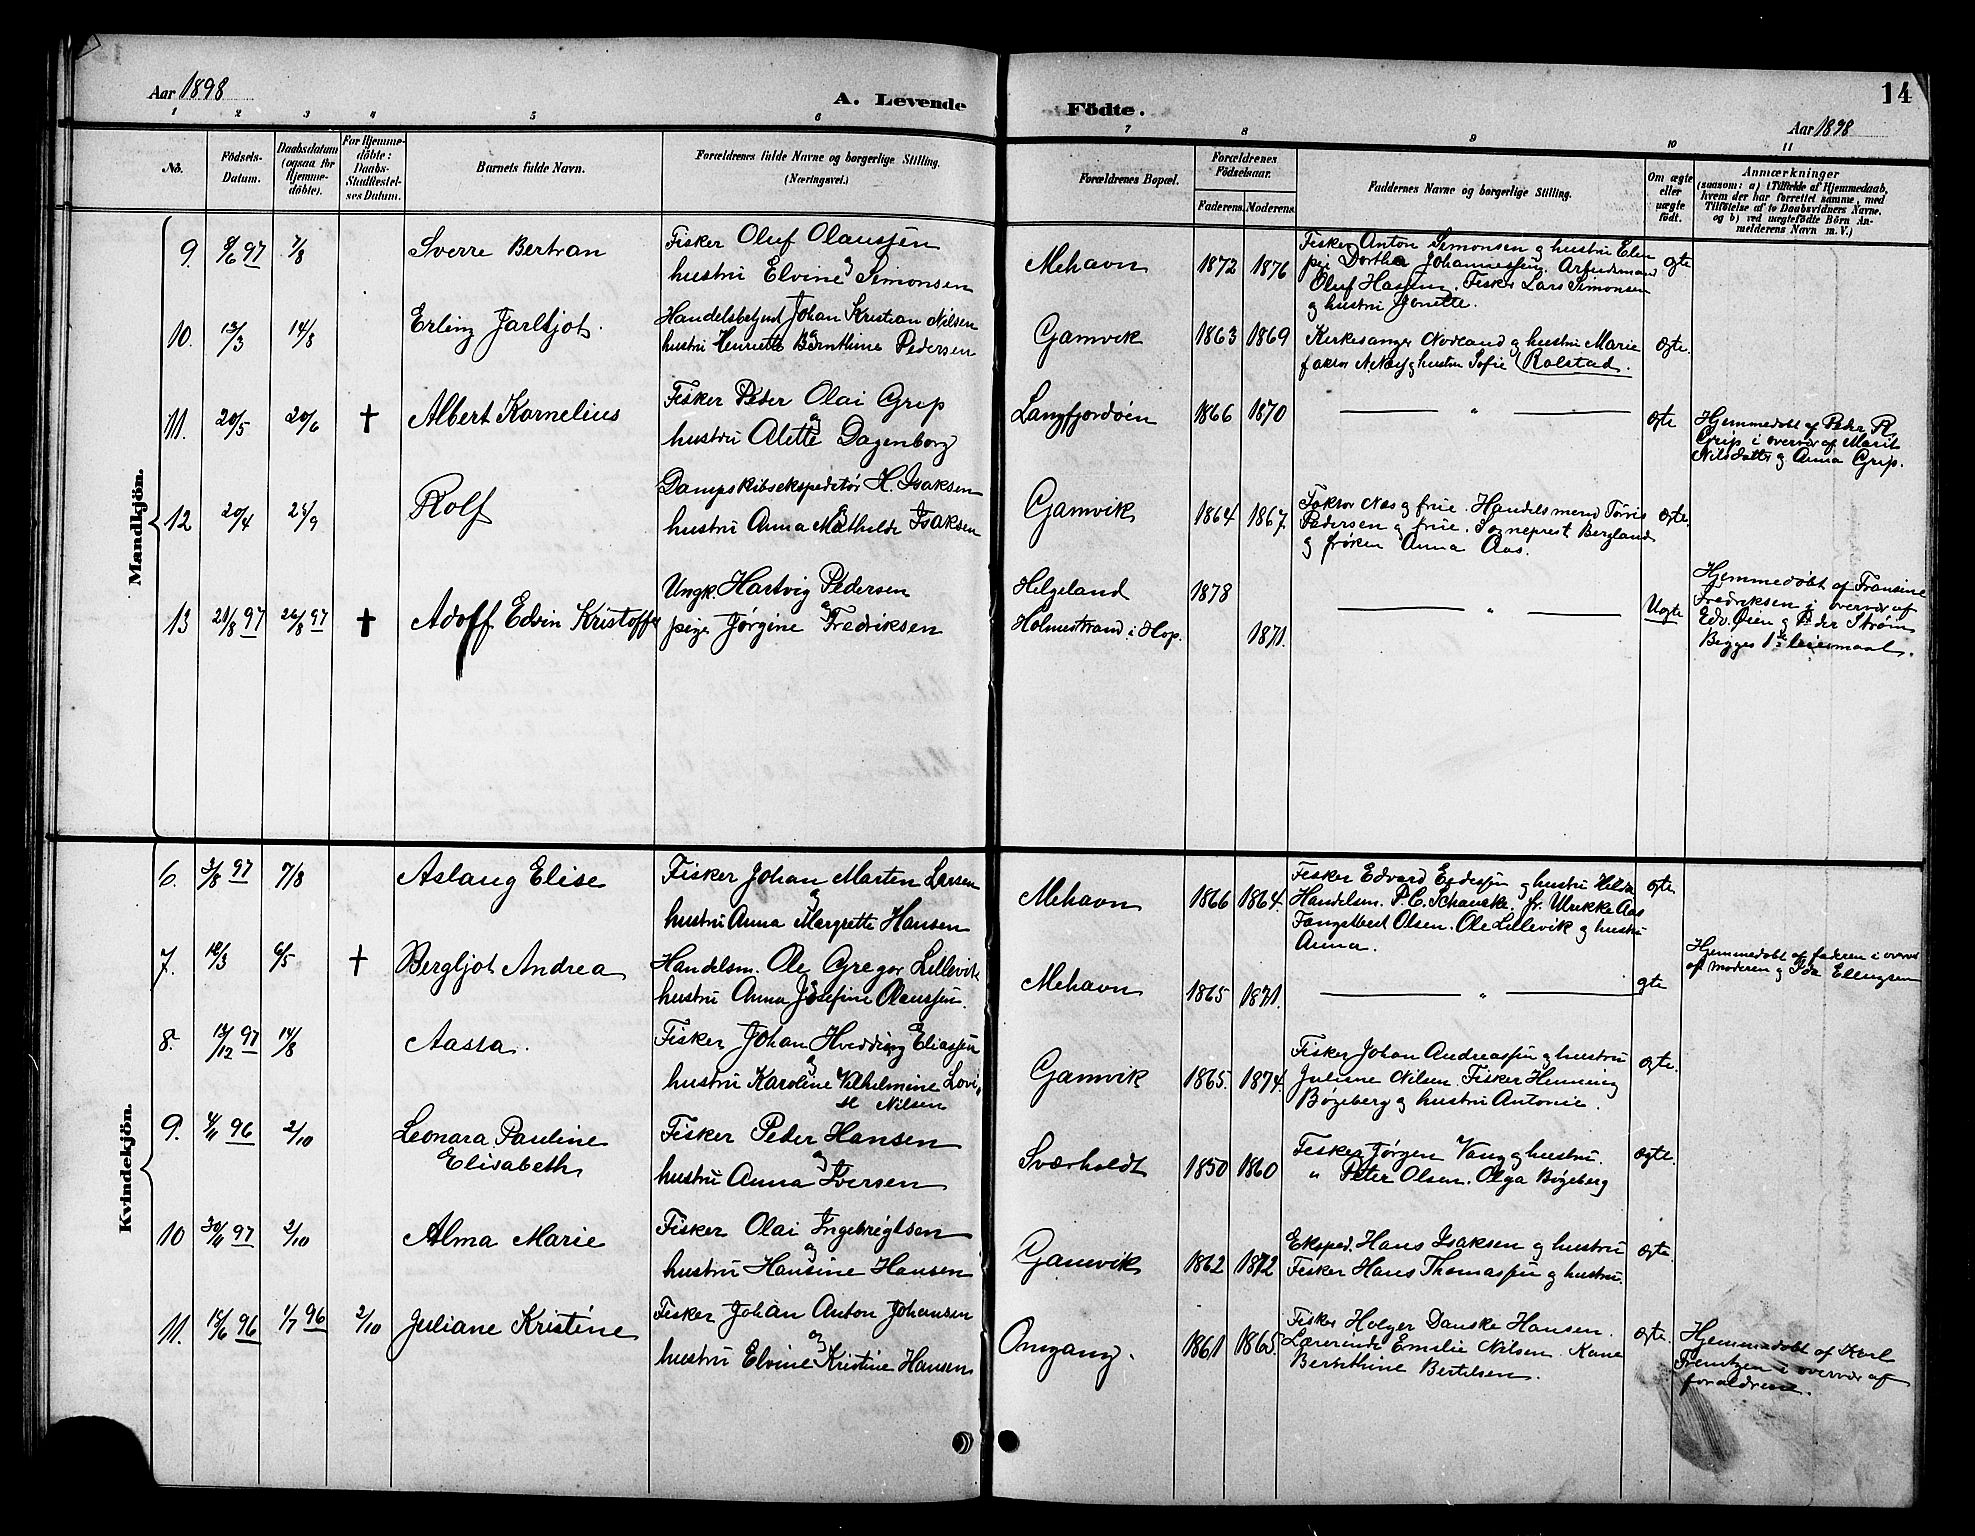 Aar 1898
A. Levende
Födte.
14
Aar 1898
1 2 3 4 5 6 7 8 9 10 11
No.
Födsels-
Datum.
Daabsdatum
(ogsaa for
Hjemme-
döbte).
For Hjemme-
döbte:
Daabs-
Stadfæstel-
ses Datum.
Barnets fulde Navn.
Forældrenes fulde Navne og borgerlige Stilling.
(Næringsvei.)
Forældrenes Bopæl.
Forældrenes
Födselsaar.
Faderens. Moderens.
Faddernes Navne og borgerlige Stilling.
Om ægte
eller
uægte
födt.
Anmærkninger
(saasom: a) i Tilfælde af Hjemmedaab,
hvem der har forrettet samme, med
Tilföielse af to Daabsvidners Navne,
og b) ved uægtefödte Börn An-
melderens Navn m. V.)
Mandkjön.
9. 9/6 97 7/8 Sverre Bertran
Fisker Oluf Olaussen
og
hustru Elvine Simonsen
Mehavn 1872 1876
Fisker Anton Simonsen og hustru Elen
pige Dorthea Johannessen. Arbeidsmand
Oluf Hansen. Fisker Lars Simonsen
og hustru Jonette.
ægte
10. 13/3 14/8 Erling Jarlsjot.
Handelsbetjent Johan Kristian Nilsen
og
hustru Henriette Bernthine Pedersen
Gamvik 1863 1869
Kirkesanger Nodland og hustru Marie
faktor N. Næss og hustru Sofie (Rolstad.
ægte.
11. 20/5 20/6 † Albert Kornelius
Fisker Peder Olai Grip
og
hustru Alette Dagenborg
Langfjordøen 1866 1870
— " —
ægte
Hjemmedøbt af Peder R.
Grip i overvær af Marit
Nilsdatter og Anna Grip.
12 20/4 25/9 Rolf
Dampskibsekspeditør H. Isaksen
og
hustru Anna Mathilde Isaksen
Gamvik 1864 1867.
Faktor Næs og frue. Handelsmend Tørris
Pedersen og frue. Sogneprest Bergland
og frøken Anna Aas.
ægte.
13 21/8 97 26/8 97 † Adolf Edvin Kristoffer
Ungk. Hartvig Pedersen
og
pige Jørgine Fredriksen
Helgeland 1878
Holmestrand i Hop. 1871.
— " —
Uægte
Hjemmedøbt af Fransine
Fredriksen i overvær af
Edv. Øien og Peder Strøm
Begges 1ste leiermaal.
Kvindekjön.
6. 3/8 97 7/8 Aslaug Elise
Fisker Johan Marten Larsen
og
hustru Anna Margrette Hansen
Mehavn 1866 1864.
Fisker Edvard Endresen og hustru Hilda
Handelsm. P. C. Schancke. fr. Ulrikke Aas
Fangelbert Olsen. Ole Lillevik og hustru
Anna.
ægte
7. 12/3 6/5 † Bergljot Andrea
Handelsm. Ole Gregor Lillevik
hustru Anna Josefine Olaussen.
Mehavn 1865 1871.
— " —
ægte
Hjemmedøbt af faderen i overvær
af moderen og Ida Ellingsen
8. 12/12 97 14/8 Aasta.
Fisker Johan Hvedding Eliassen
og
hustru Karoline Vilhelmine Lovi-
se Nilsen
Gamvik 1865. 1874.
Fisker Johan Andreassen og hustru
Juliane Nilsen. Fisker Henning
Bøgeberg og hustru Antonie.
ægte.
9. 4/11 96 2/10 Leonara Pauline
Elisabeth
Fisker Peder Hansen
og
hustru Anna Iversen
Sværholdt 1850 1860
Fisker Jørgen Vang og hustru.
" Peter Olsen. Olga Bøgeberg
ægte.
10 30/11 97 2/10 Alma Marie
Fisker Olai Ingebrigtsen
og
hustru Hansine Hansen
Gamvik 1862 1872
Eksped. Hans Isaksen og hustru
Fisker Hans Thomassen og hustru.
ægte
11. 15/6 96 1/7 96 2/10 Juliane Kristine
Fisker Johan Anton Johansen
og
hustru Elvine Kristine Hansen
Omgang. 1861 1865.
Fisker Holger Danske Hansen.
Lærerinde Emilie Nilsen. Kone
Berethine Bertelsen.
ægte.
Hjemmedøbt af Karl
Frentzen i overvær af
forældrene.